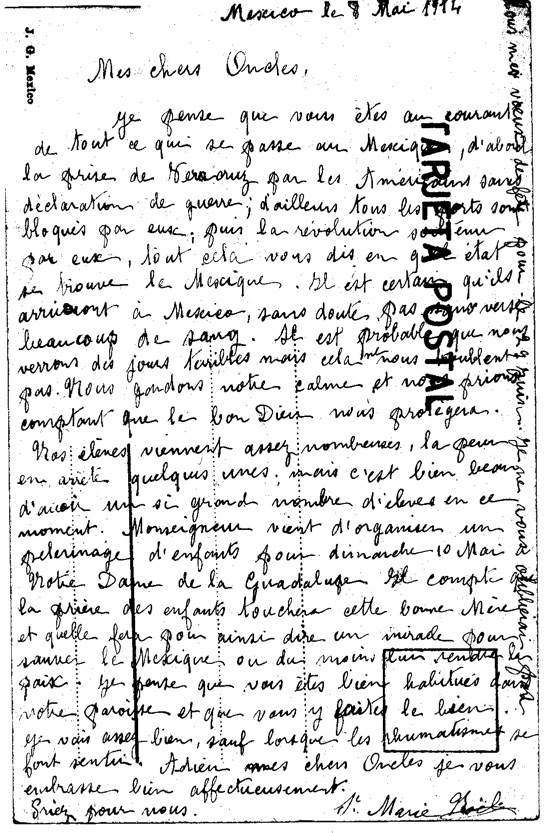 Mexico le 8 Mai 1914
J. G. Mexico
TARJETA POSTAL
Mes chers Oncles,
Je pense que vous êtes au courant
de tout ce qui se passe au Mexique, d'abord
la prise de Veracruz par les Américains sans
déclaration de guerre; d'ailleurs tous les ports sont
bloqués par eux; puis la révolution soutenu
par eux, tout cela vous dis en quel état
se trouve le Mexique. Il est certain qu'ils
arriveront à Mexico, sans doute, pas sans verser
beaucoup de sang. Il est probable que nous
verrons des jours terribles mais cela ne nous troublent
pas. Nous gardons notre calme et nous prions
comptant que le bon Dieu nous protègera.
Nos élèves viennent assez nombreuses, la peur
en arrête quelques unes, mais c'est bien beau
d'avoir un si grand nombre d'élèves en ce
moment. Monseigneur vient d'organiser un
pelerinage d'enfants pour dimanche 10 Mai
Notre Dame de la Guadalupe Il compte q
la prière des enfants touchera cette bonne Mère
et quelle fera pour ainsi dire un miracle pour
sauver le Mexique ou du moins lui rendre la
paix. Je pense que vous êtes bien habitués dans
votre paroisse et que vous y faites le bien.
Je vais assez bien, sauf lorsque les rhumatismes se
font sentir. Adieu mes chers Oncles je vous
embrasse bien affectueusement.
Priez pour nous. Sr Marie
mes vœux de fête pour le juin. Je ne vous oublierai pas